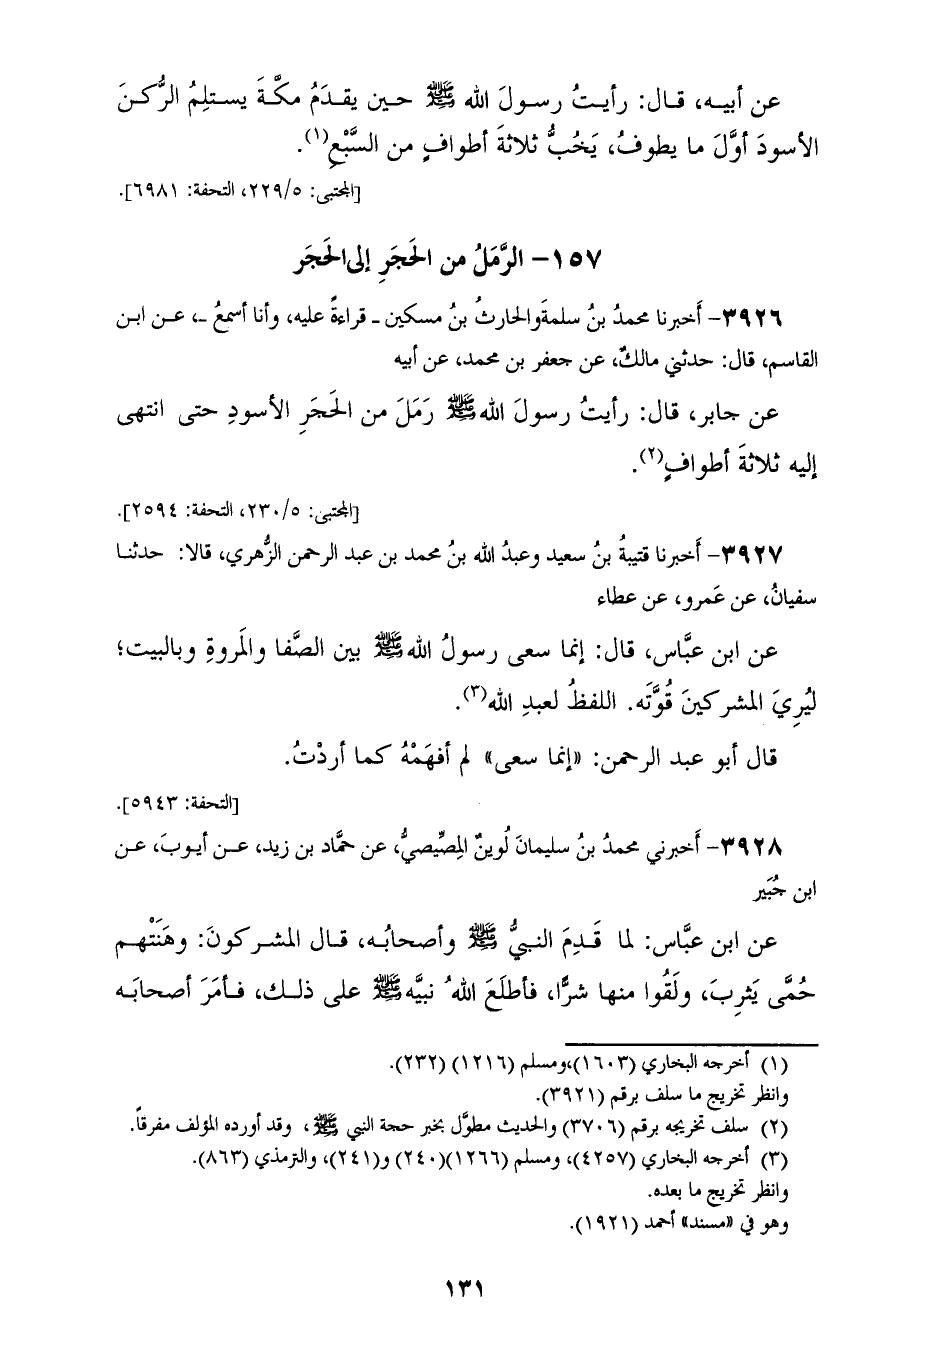 عن أبيه، قال: رأيتُ رسولَ الله ﷺ حين يقدَمُ مكَّةَ يستلِمُ الرُّكنَ
الأسودَ أوَّلَ ما يطوفُ، يَخُبُّ ثلاثةَ أطوافٍ من السَّبْعِ(١).
[المجتبى: ٢٢٩/٥، التحفة: ٦٩٨١].
١٥٧- الرَّمَلُ من الحَجَرِ إلى الحَجَر
٣٩٢٦- أَخبرنا محمدُ بنُ سلمةَ والحارثُ بنُ مسكين ـ قراءةً عليه، وأنا أسمعُ ـ، عن ابن
القاسم، قال: حدثني مالكٌ، عن جعفر بن محمد، عن أبيه
عن جابر، قال: رأيتُ رسولَ الله ﷺ رَمَلَ من الحَجَرِ الأسودِ حتى انتهى
إليه ثلاثةَ أطوافٍ(٢).
[المجتبى: ٢٣٠/٥، التحفة: ٢٥٩٤].
٣٩٢٧- أَخبرنا قتيبةُ بنُ سعيد وعبدُ الله بنُ محمد بن عبد الرحمن الزُّهري، قالا: حدثنا
سفيانُ، عن عَمرو، عن عطاء
عن ابن عبَّاس، قال: إنما سعى رسولُ الله ﷺ بين الصَّفا والمَروةِ وبالبيت؛
ليُرِيَ المشركينَ قُوَّتَه. اللفظُ لعبدِ الله(٣).
قال أبو عبد الرحمن: «إنما سعى» لم أفهَمْهُ كما أردْتُ.
[التحفة: ٥٩٤٣].
٣٩٢٨- أَخبرني محمدُ بنُ سليمانَ لُوينٌ المِصِّيصيُّ، عن حمَّاد بن زيد، عن أيوبَ، عن
ابن جُبَير
عن ابن عبَّاس: لما قَدِمَ النبيُّ ﷺ وأصحابُه، قال المشركونَ: وهَنَتْهم
حُمَّى يَثرِبَ، ولَقُوا منها شرًّا، فأطلَعَ اللهُ نبيَّه ﷺ على ذلك، فأمَرَ أصحابَه
(١) أخرجه البخاري (١٦٠٣)،ومسلم (١٢١٦) (٢٣٢).
وانظر تخريج ما سلف برقم (٣٩٢١).
(٢) سلف تخريجه برقم (٣٧٠٦) والحديث مطوَّل بخبر حجة النبي ﷺ ، وقد أورده المؤلف مفرقاً.
(٣) أخرجه البخاري (٤٢٥٧)، ومسلم (١٢٦٦)(٢٤٠) و(٢٤١)، والترمذي (٨٦٣).
وانظر تخريج ما بعده.
وهو في «مسند» أحمد (١٩٢١).
١٣١